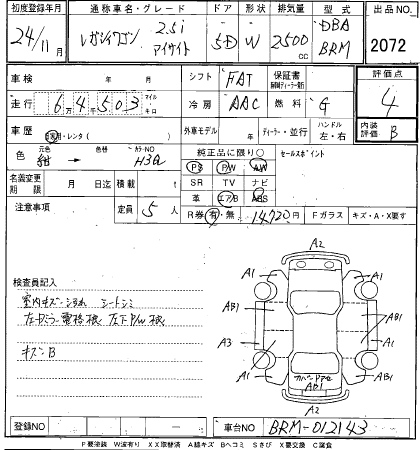 初度登録年月 通称車名・グレード ドア 形状 排気量 型式 出品NO
24/11月 レガシィワゴン 2.5i アイサイト 5D W 2500cc DBA BRM 2072
車検 年 月 シフト FAT 保証書 評価点
走行 6万4千503 マイル キロ 冷房 AAC 燃料 G 4
車歴 自家用・レンタ( ) 外車モデル 年 ディーラー・並行 ハンドル 左・右 内装評価 B
色 元色 紺 色替 カラーNO H3Q 純正品に限り○ セールスポイント
PS PW AW
名義変更期限 月 日迄 積載 t SR TV ナビ
革 エアB ABS
注意事項 定員 5人 R券 有・無 14720円 Fガラス キズ・A・X要す
検査員記入
室内キズ・シミ シートシミ
左ドアミラー電格横 左下P/W横
キズB
A2
A1 A1
AB1 AB1
A3 A1
A1 AB1
カバーアクアAB1
A2
登録NO 車台NO BRM-012143
P要塗装 W波有り XX取替済 A線キズ Bヘコミ Sさび X要交換 C腐食